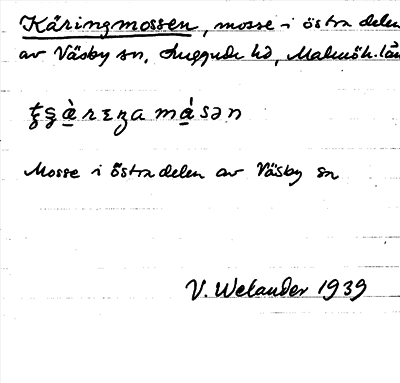 Käringmossen, mosse i östra delen
av Väsby sn, Luggude hd, Malmöh. län
Mosse i östra delen av Väsby sn
V. Welander 1939